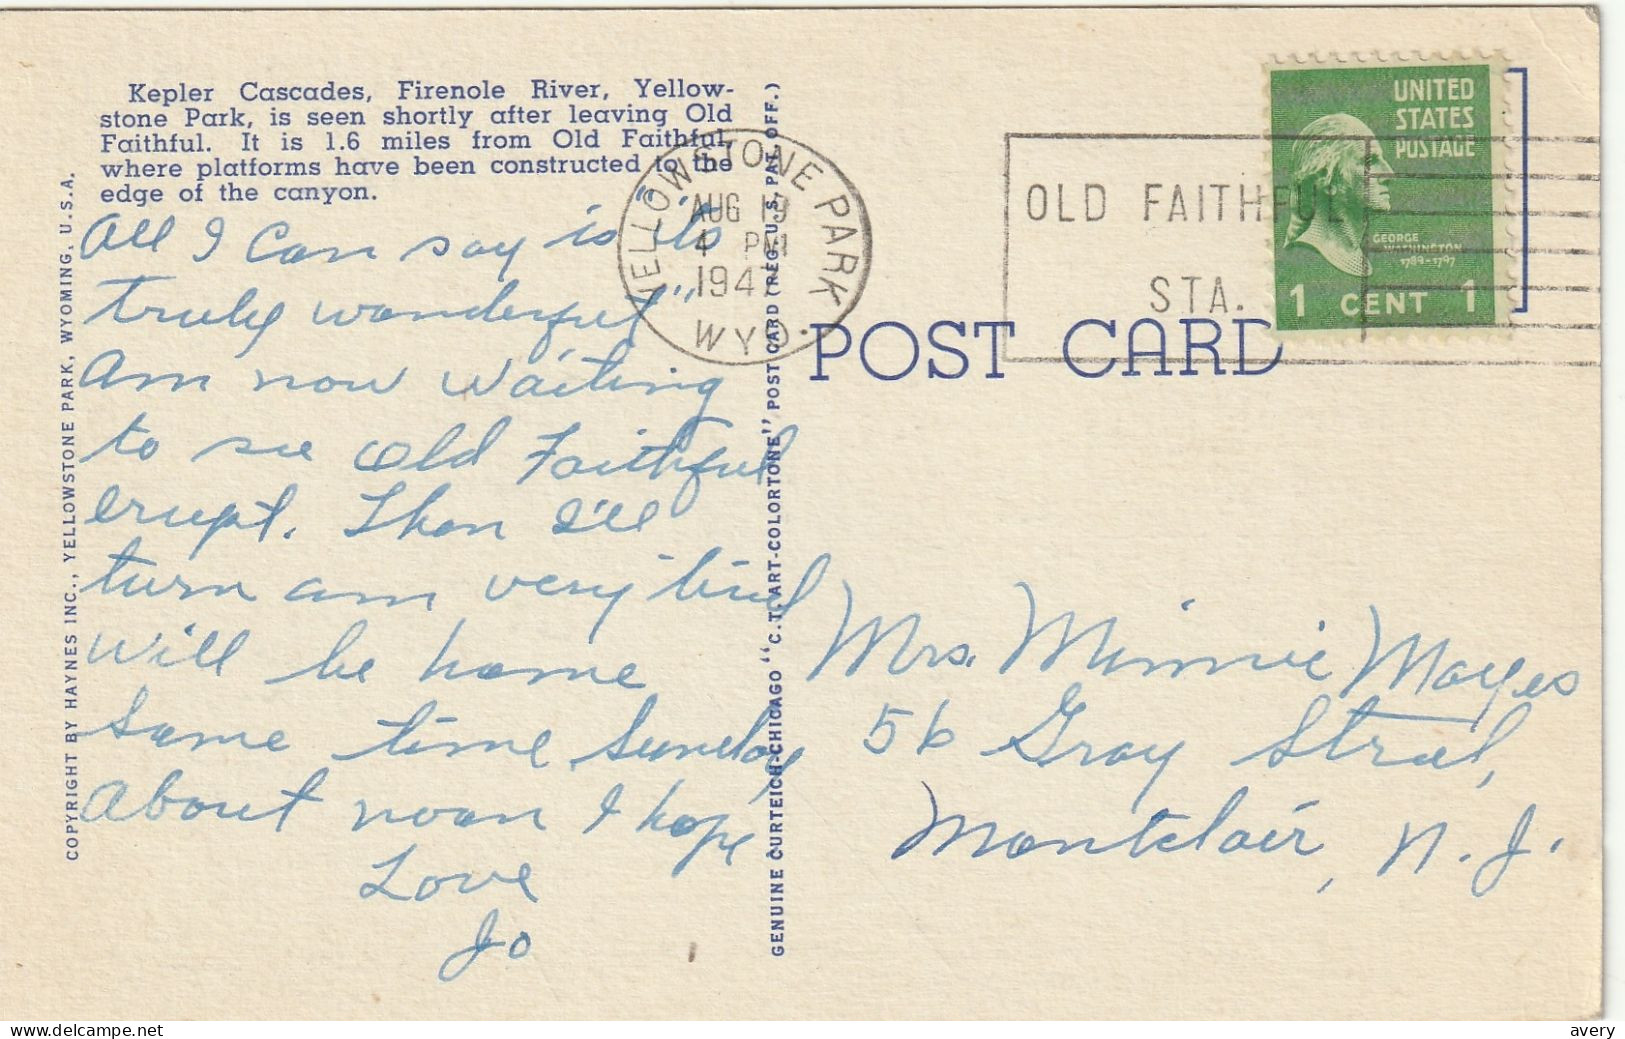 Kepler Cascades, Firenole River, Yellow-
stone Park, is seen shortly after leaving Old
Faithful. It is 1.6 miles from Old Faithful,
where platforms have been constructed to the
edge of the canyon.
All I can say is "its
truly wonderful"
Am now waiting
to see Old Faithful
erupt. Then I'll
turn am very tired
Will be home
some time Sunday
About noon I hope
Love
Jo
COPYRIGHT BY HAYNES INC., YELLOWSTONE PARK, WYOMING, U.S.A.
GENUINE CURTEICH-CHICAGO "C.T. ART-COLORTONE" POST CARD (REG. U.S. PAT. OFF.)
YELLOWSTONE PARK
AUG 19
4 PM
1947
WYO.
OLD FAITHFUL
STA.
UNITED
STATES
POSTAGE
GEORGE
WASHINGTON
1789-1797
1 CENT 1
POST CARD
Mrs. Minnie Mayes
56 Gray Street,
Montclair, N. J.
delcampe.net
avery